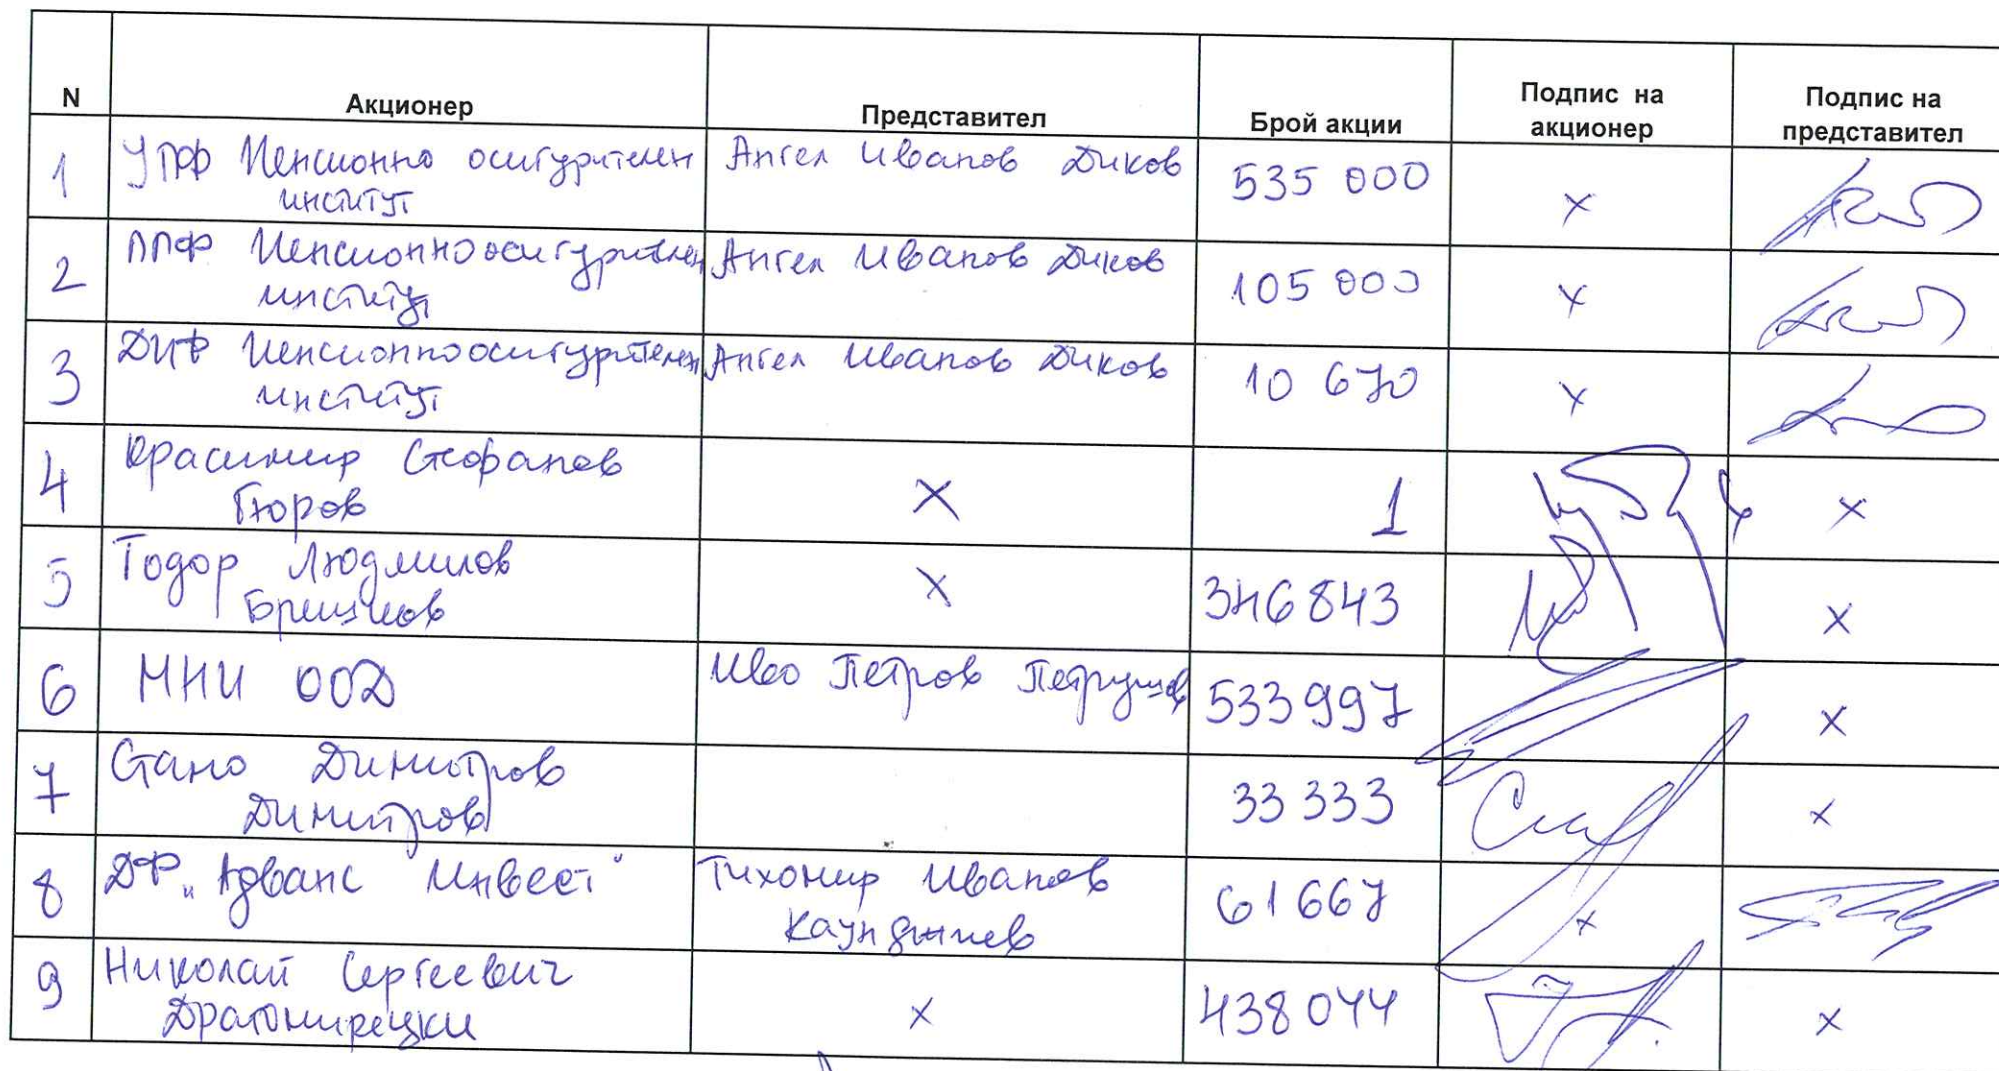 N Акционер Представител Брой акции Подпис на акционер Подпис на представител
1 УПФ Пенсионно осигурителен институт Ангел Иванов Диков 535 000 x
2 ППФ Пенсионноосигурителен институт Ангел Иванов Диков 105 000 x
3 ДПФ Пенсионноосигурителен институт Ангел Иванов Диков 10 670 x
4 Красимир Стефанов Гюров x 1 x
5 Тодор Людмилов x 346843 x
6 МНИ ООД Иво Петров Петрушов 533997 x
7 Стано Димитров Димитров 33 333 x
8 ДФ „Адванс Инвест" Тихомир Иванов Каунджиев 61667 x
9 Николай Сергеевич Драгомирецки x 438044 x